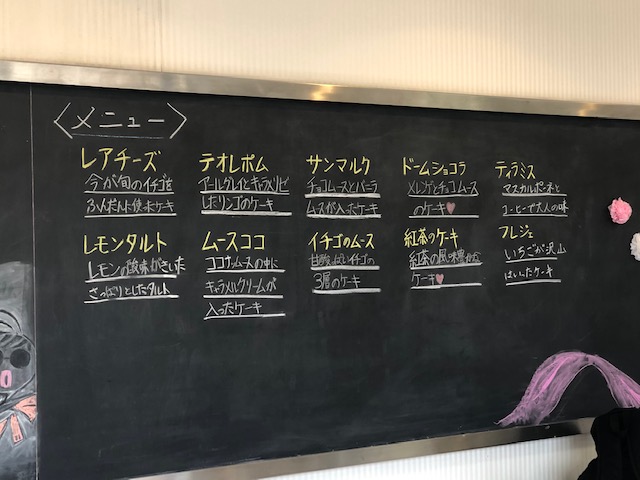 〈メニュー〉
レアチーズ
今が旬のイチゴを
ふんだんに使ったケーキ
テオレポム
アールグレイとキャラメリゼ
したリンゴのケーキ
サンマルク
チョコムースとバニラ
ムースが入ったケーキ
ドームショコラ
メレンゲとチョコムース
のケーキ♥
ティラミス
マスカルポーネと
コーヒーで大人の味
レモンタルト
レモンの酸味がきいた
さっぱりとしたタルト
ムースココ
ココナッツムースの中に
キャラメルクリームが
入ったケーキ
イチゴのムース
甘酸っぱいイチゴの
3層のケーキ
紅茶のケーキ
紅茶の風味豊かな
ケーキ♥
フレジェ
いちごが沢山
はいったケーキ